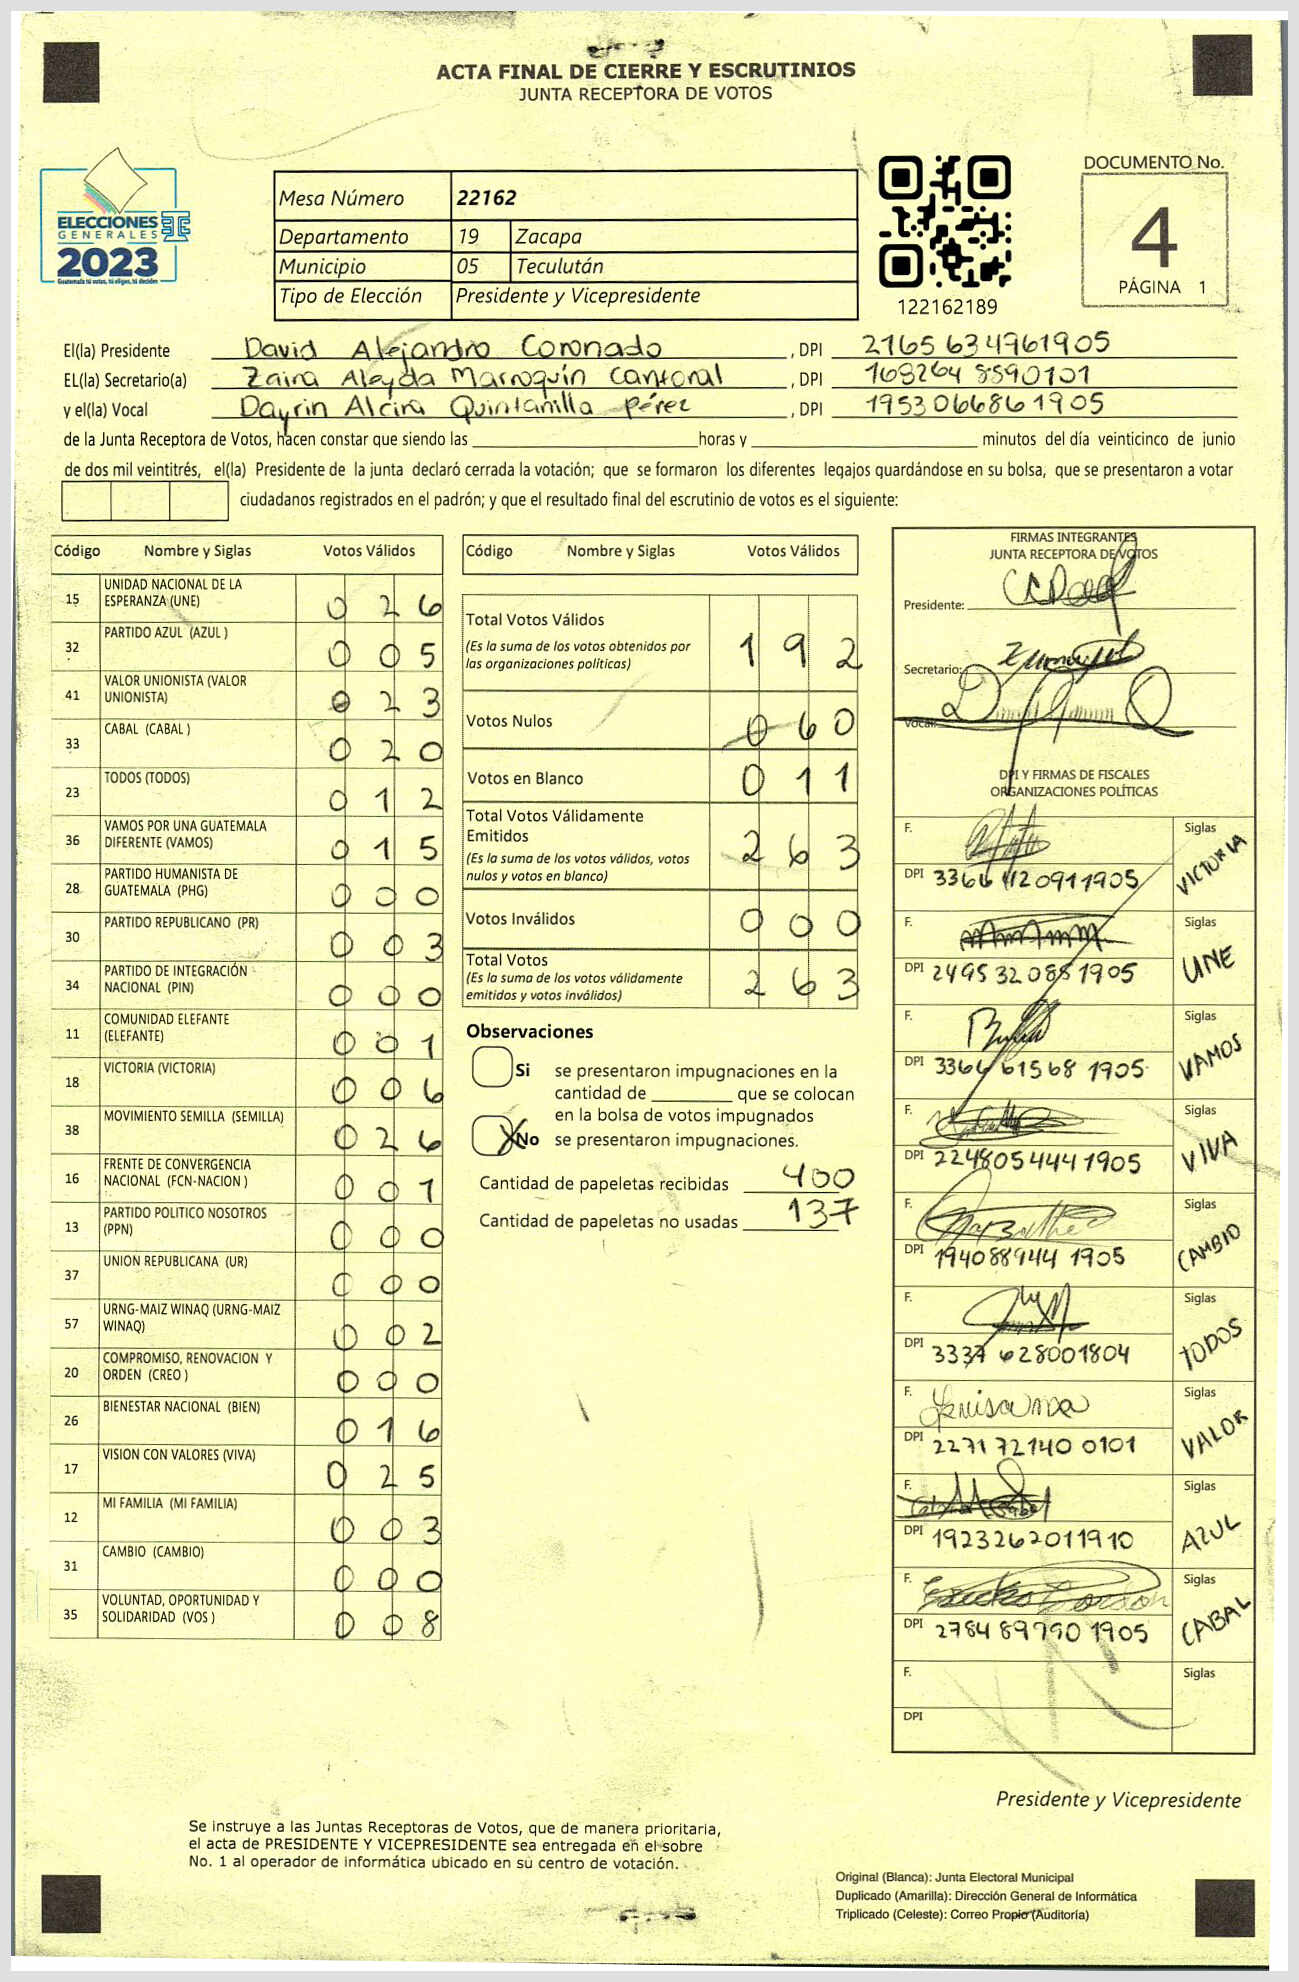 ACTA FINAL DE CIERRE Y ESCRUTINIOS
JUNTA RECEPTORA DE VOTOS
ELECCIONES
GENERALES
2023
Guatemala tú votas, tú eliges, tú decides
Mesa Número 22162
Departamento 19 Zacapa
Municipio 05 Teculután
Tipo de Elección Presidente y Vicepresidente
122162189
DOCUMENTO No.
4
PÁGINA 1
El(la) Presidente David Alejandro Coronado, DPI 2165634961905
EL(la) Secretario(a) Zaira Aleyda Marroquín Cantoral, DPI 163264 8590101
y el(la) Vocal Dayrin Alcira Quintanilla Pérez, DPI 1953066861905
de la Junta Receptora de Votos, hacen constar que siendo las ____ horas y ____ minutos del día veinticinco de junio
de dos mil veintitrés, el(la) Presidente de la junta declaró cerrada la votación; que se formaron los diferentes legajos quardándose en su bolsa, que se presentaron a votar
ciudadanos registrados en el padrón; y que el resultado final del escrutinio de votos es el siguiente:
Código Nombre y Siglas Votos Válidos
15 UNIDAD NACIONAL DE LA ESPERANZA (UNE) 026
32 PARTIDO AZUL (AZUL ) 005
41 VALOR UNIONISTA (VALOR UNIONISTA) 023
33 CABAL (CABAL ) 020
23 TODOS (TODOS) 012
36 VAMOS POR UNA GUATEMALA DIFERENTE (VAMOS) 015
28 PARTIDO HUMANISTA DE GUATEMALA (PHG) 000
30 PARTIDO REPUBLICANO (PR) 003
34 PARTIDO DE INTEGRACIÓN NACIONAL (PIN) 000
11 COMUNIDAD ELEFANTE (ELEFANTE) 001
18 VICTORIA (VICTORIA) 006
38 MOVIMIENTO SEMILLA (SEMILLA) 026
16 FRENTE DE CONVERGENCIA NACIONAL (FCN-NACION ) 001
13 PARTIDO POLITICO NOSOTROS (PPN) 000
37 UNION REPUBLICANA (UR) 000
57 URNG-MAIZ WINAQ (URNG-MAIZ WINAQ) 002
20 COMPROMISO, RENOVACION Y ORDEN (CREO ) 000
26 BIENESTAR NACIONAL (BIEN) 016
17 VISION CON VALORES (VIVA) 025
12 MI FAMILIA (MI FAMILIA) 003
31 CAMBIO (CAMBIO) 000
35 VOLUNTAD, OPORTUNIDAD Y SOLIDARIDAD (VOS ) 008
Código Nombre y Siglas Votos Válidos
Total Votos Válidos 192
(Es la suma de los votos obtenidos por
las organizaciones políticas)
Votos Nulos 060
Votos en Blanco 011
Total Votos Válidamente
Emitidos 263
(Es la suma de los votos válidos, votos
nulos y votos en blanco)
Votos Inválidos 000
Total Votos 263
(Es la suma de los votos válidamente
emitidos y votos inválidos)
Observaciones
Si se presentaron impugnaciones en la
cantidad de ____ que se colocan
en la bolsa de votos impugnados
X No se presentaron impugnaciones.
Cantidad de papeletas recibidas 400
Cantidad de papeletas no usadas 137
FIRMAS INTEGRANTES
JUNTA RECEPTORA DE VOTOS
Presidente:
Secretario:
Vocal:
DPI Y FIRMAS DE FISCALES
ORGANIZACIONES POLÍTICAS
F. Siglas VICTORIA
DPI 3366 1120911905
F. Siglas UNE
DPI 2495 32088 1905
F. Siglas VAMOS
DPI 3366 61568 1905
F. Siglas VIVA
DPI 2248054441905
F. Siglas CAMBIO
DPI 194088944 1905
F. Siglas TODOS
DPI 3337 628001804
F. Siglas VALOR
DPI 2271 72140 0101
F. Siglas AZUL
DPI 1923262011910
F. Siglas CABAL
DPI 2784 89790 1905
F. Siglas
DPI
Presidente y Vicepresidente
Se instruye a las Juntas Receptoras de Votos, que de manera prioritaria,
el acta de PRESIDENTE Y VICEPRESIDENTE sea entregada en el sobre
No. 1 al operador de informática ubicado en su centro de votación.
Original (Blanca): Junta Electoral Municipal
Duplicado (Amarilla): Dirección General de Informática
Triplicado (Celeste): Correo Propio (Auditoría)